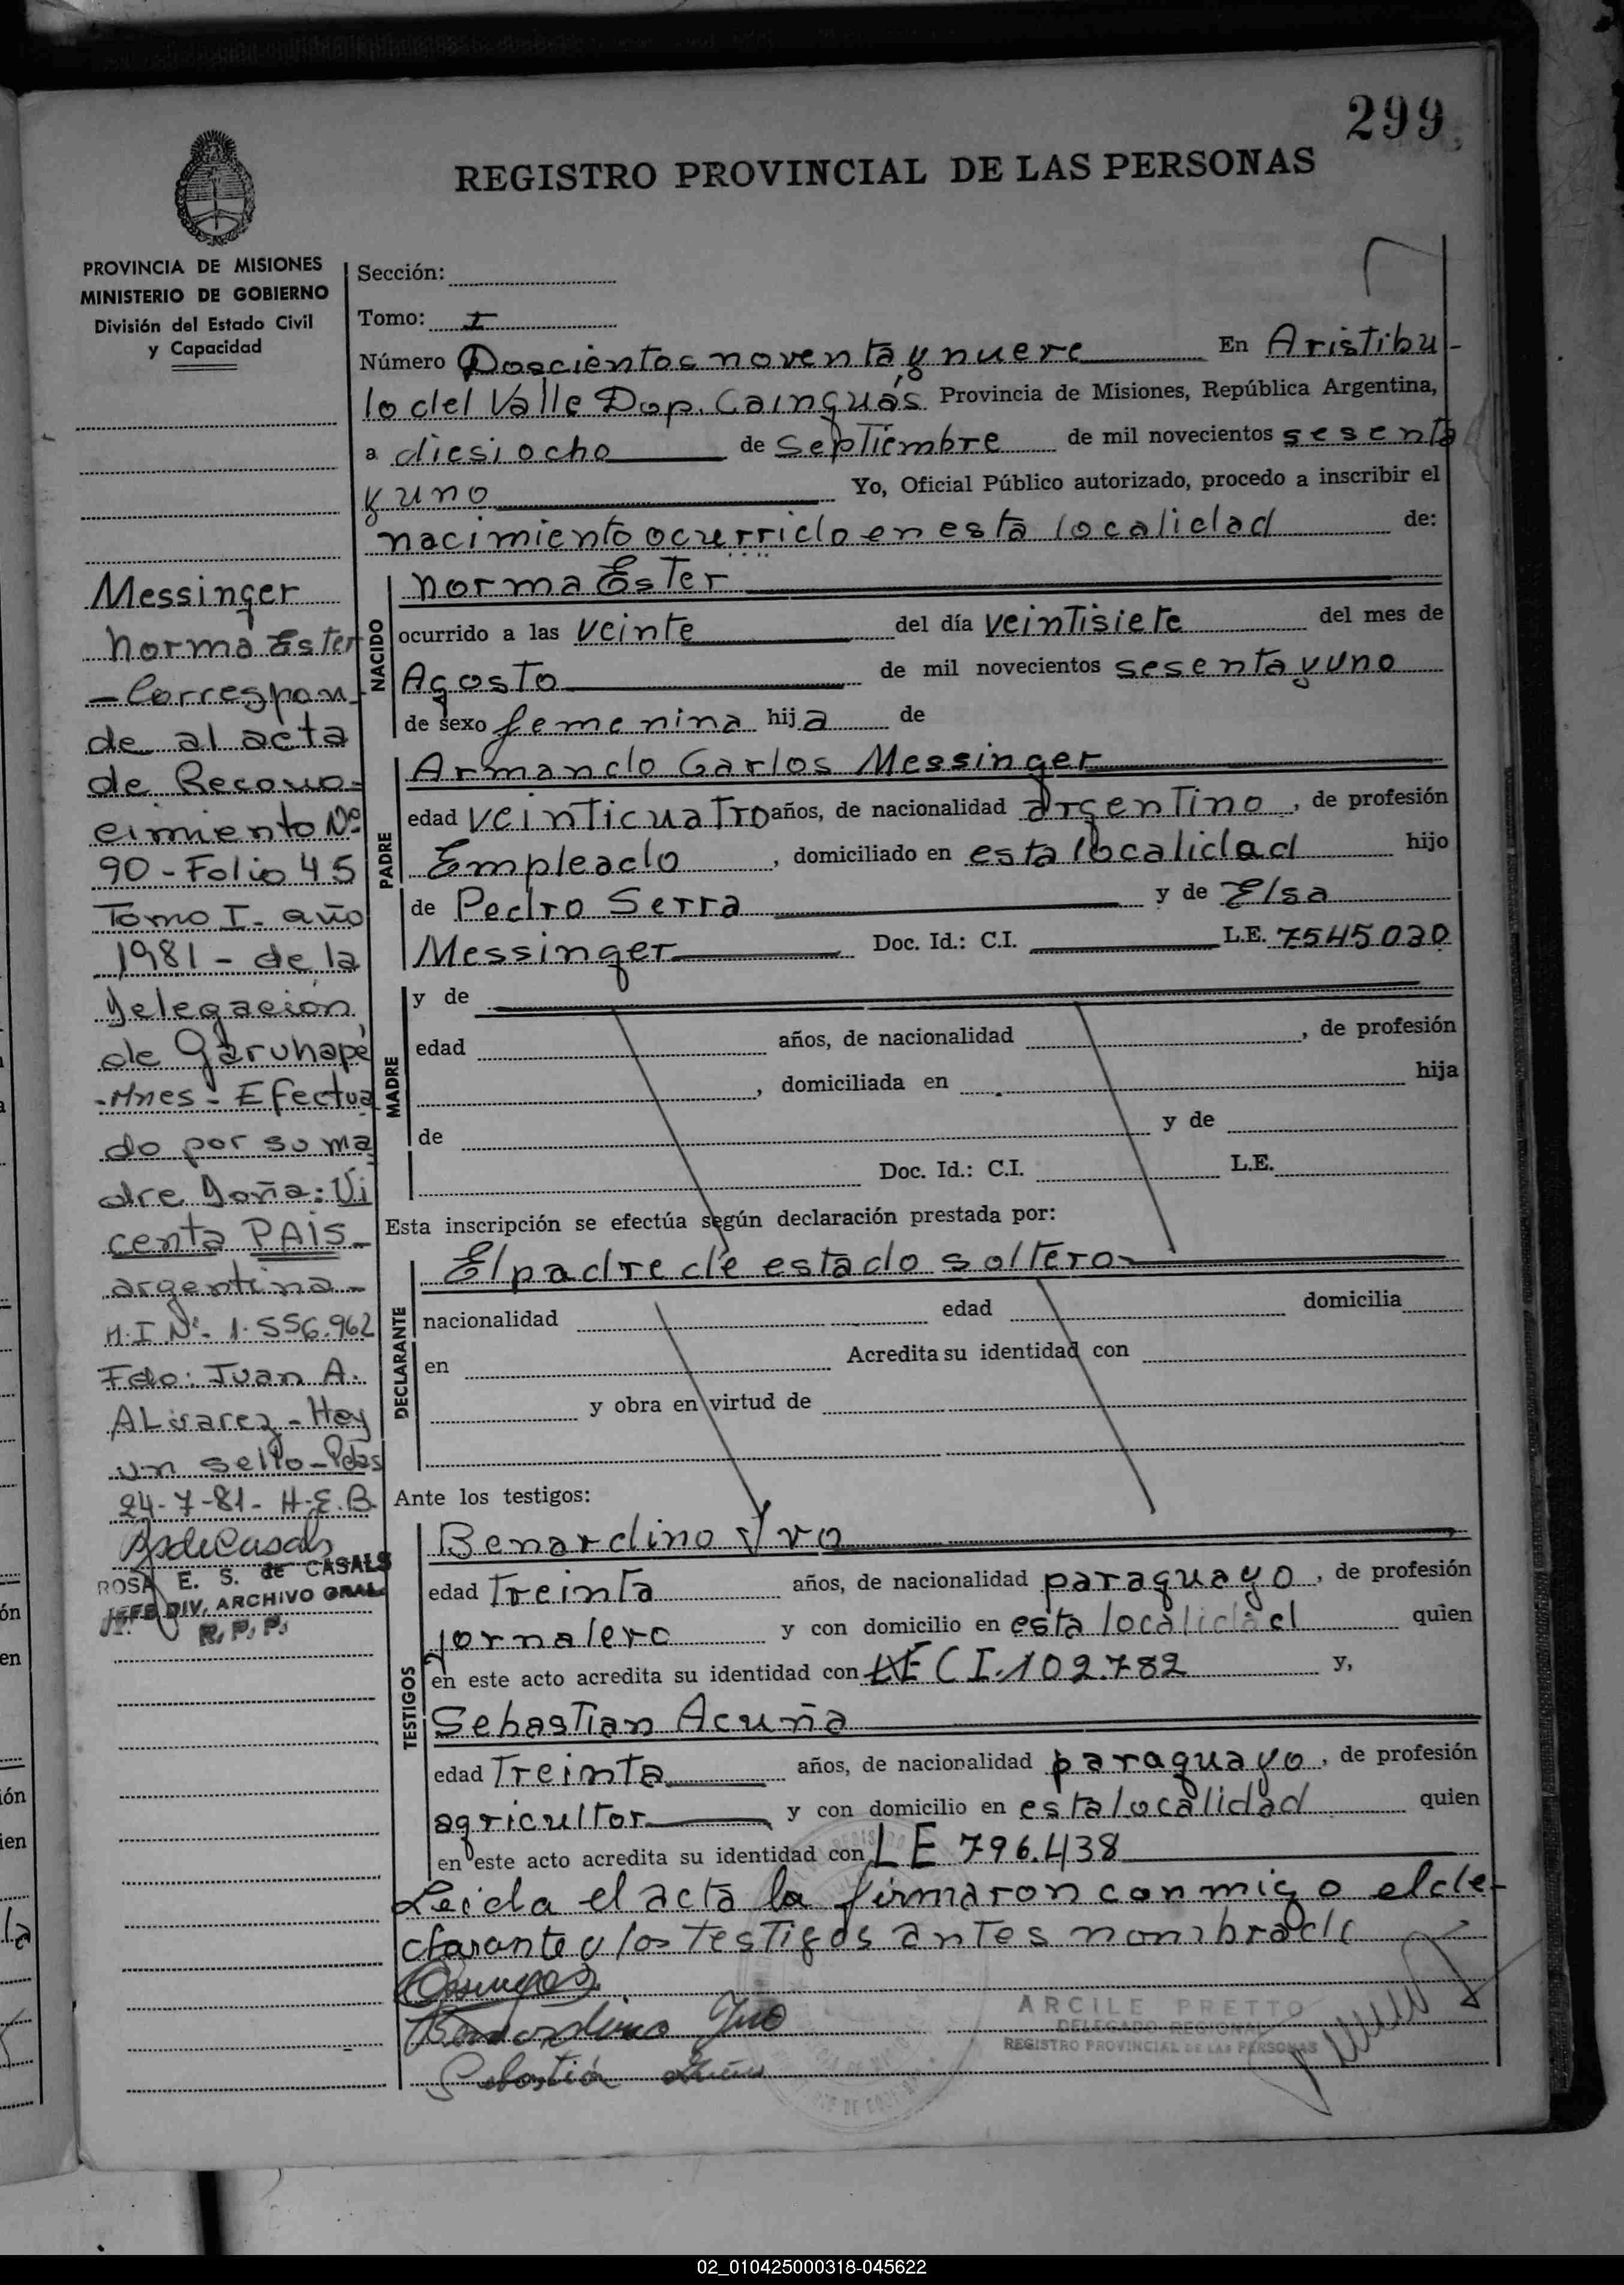 299
REGISTRO PROVINCIAL DE LAS PERSONAS
PROVINCIA DE MISIONES
MINISTERIO DE GOBIERNO
División del Estado Civil
y Capacidad
Messinger
Norma Ester
- Correspon_
de al acta
de Recono=
cimiento Nº
90 - Folio 45
Tomo I - año
1981 - de la
Delegación
de Garuhapé
- Mnes - Efectua
do por su ma
dre Doña: Vi
centa PAIS -
argentina -
M.I Nº 1.556.962
Fdo: Juan A.
ALvarez - Hay
un sello - Pdas
24-7-81- H.E.B.
ROSA E. S. de CASALS
JEFE DIV. ARCHIVO GRAL.
R. P. P.
Sección:
Tomo: I
Número Doscientos noventa y nueve En Aristibu-
lo del Valle Dop. Cainguás Provincia de Misiones, República Argentina,
a diesiocho de Septiembre de mil novecientos sesenta
y uno Yo, Oficial Público autorizado, procedo a inscribir el
nacimiento ocurrido en esta localidad de:
NACIDO
Norma Ester
ocurrido a las veinte del día veintisiete del mes de
Agosto de mil novecientos sesenta y uno
de sexo femenina hija de
PADRE
Armando Carlos Messinger
edad veinticuatro años, de nacionalidad argentino, de profesión
Empleado, domiciliado en esta localidad hijo
de Pedro Serra y de Elsa
Messinger Doc. Id.: C.I. L.E. 7545020
MADRE
y de
edad años, de nacionalidad , de profesión
, domiciliada en hija
de y de
Doc. Id.: C.I. L.E.
Esta inscripción se efectúa según declaración prestada por:
DECLARANTE
El padre de estado soltero
nacionalidad edad domicilia
en Acredita su identidad con
y obra en virtud de
Ante los testigos:
TESTIGOS
Benardino Yvo
edad Treinta años, de nacionalidad paraguayo, de profesión
jornalero y con domicilio en esta localidad quien
en este acto acredita su identidad con C I. 102.782 y,
Sebastian Acuña
edad Treinta años, de nacionalidad paraguayo, de profesión
agricultor y con domicilio en esta localidad quien
en este acto acredita su identidad con LE 796.438
Leida el acta la firmaron conmigo el de-
clarante y los testigos antes nombrado
Bernardino Yvo
Sebastián Acuña
ARCILE PRETTO
DELEGADO REGIONAL
REGISTRO PROVINCIAL DE LAS PERSONAS
02_010425000318-045622